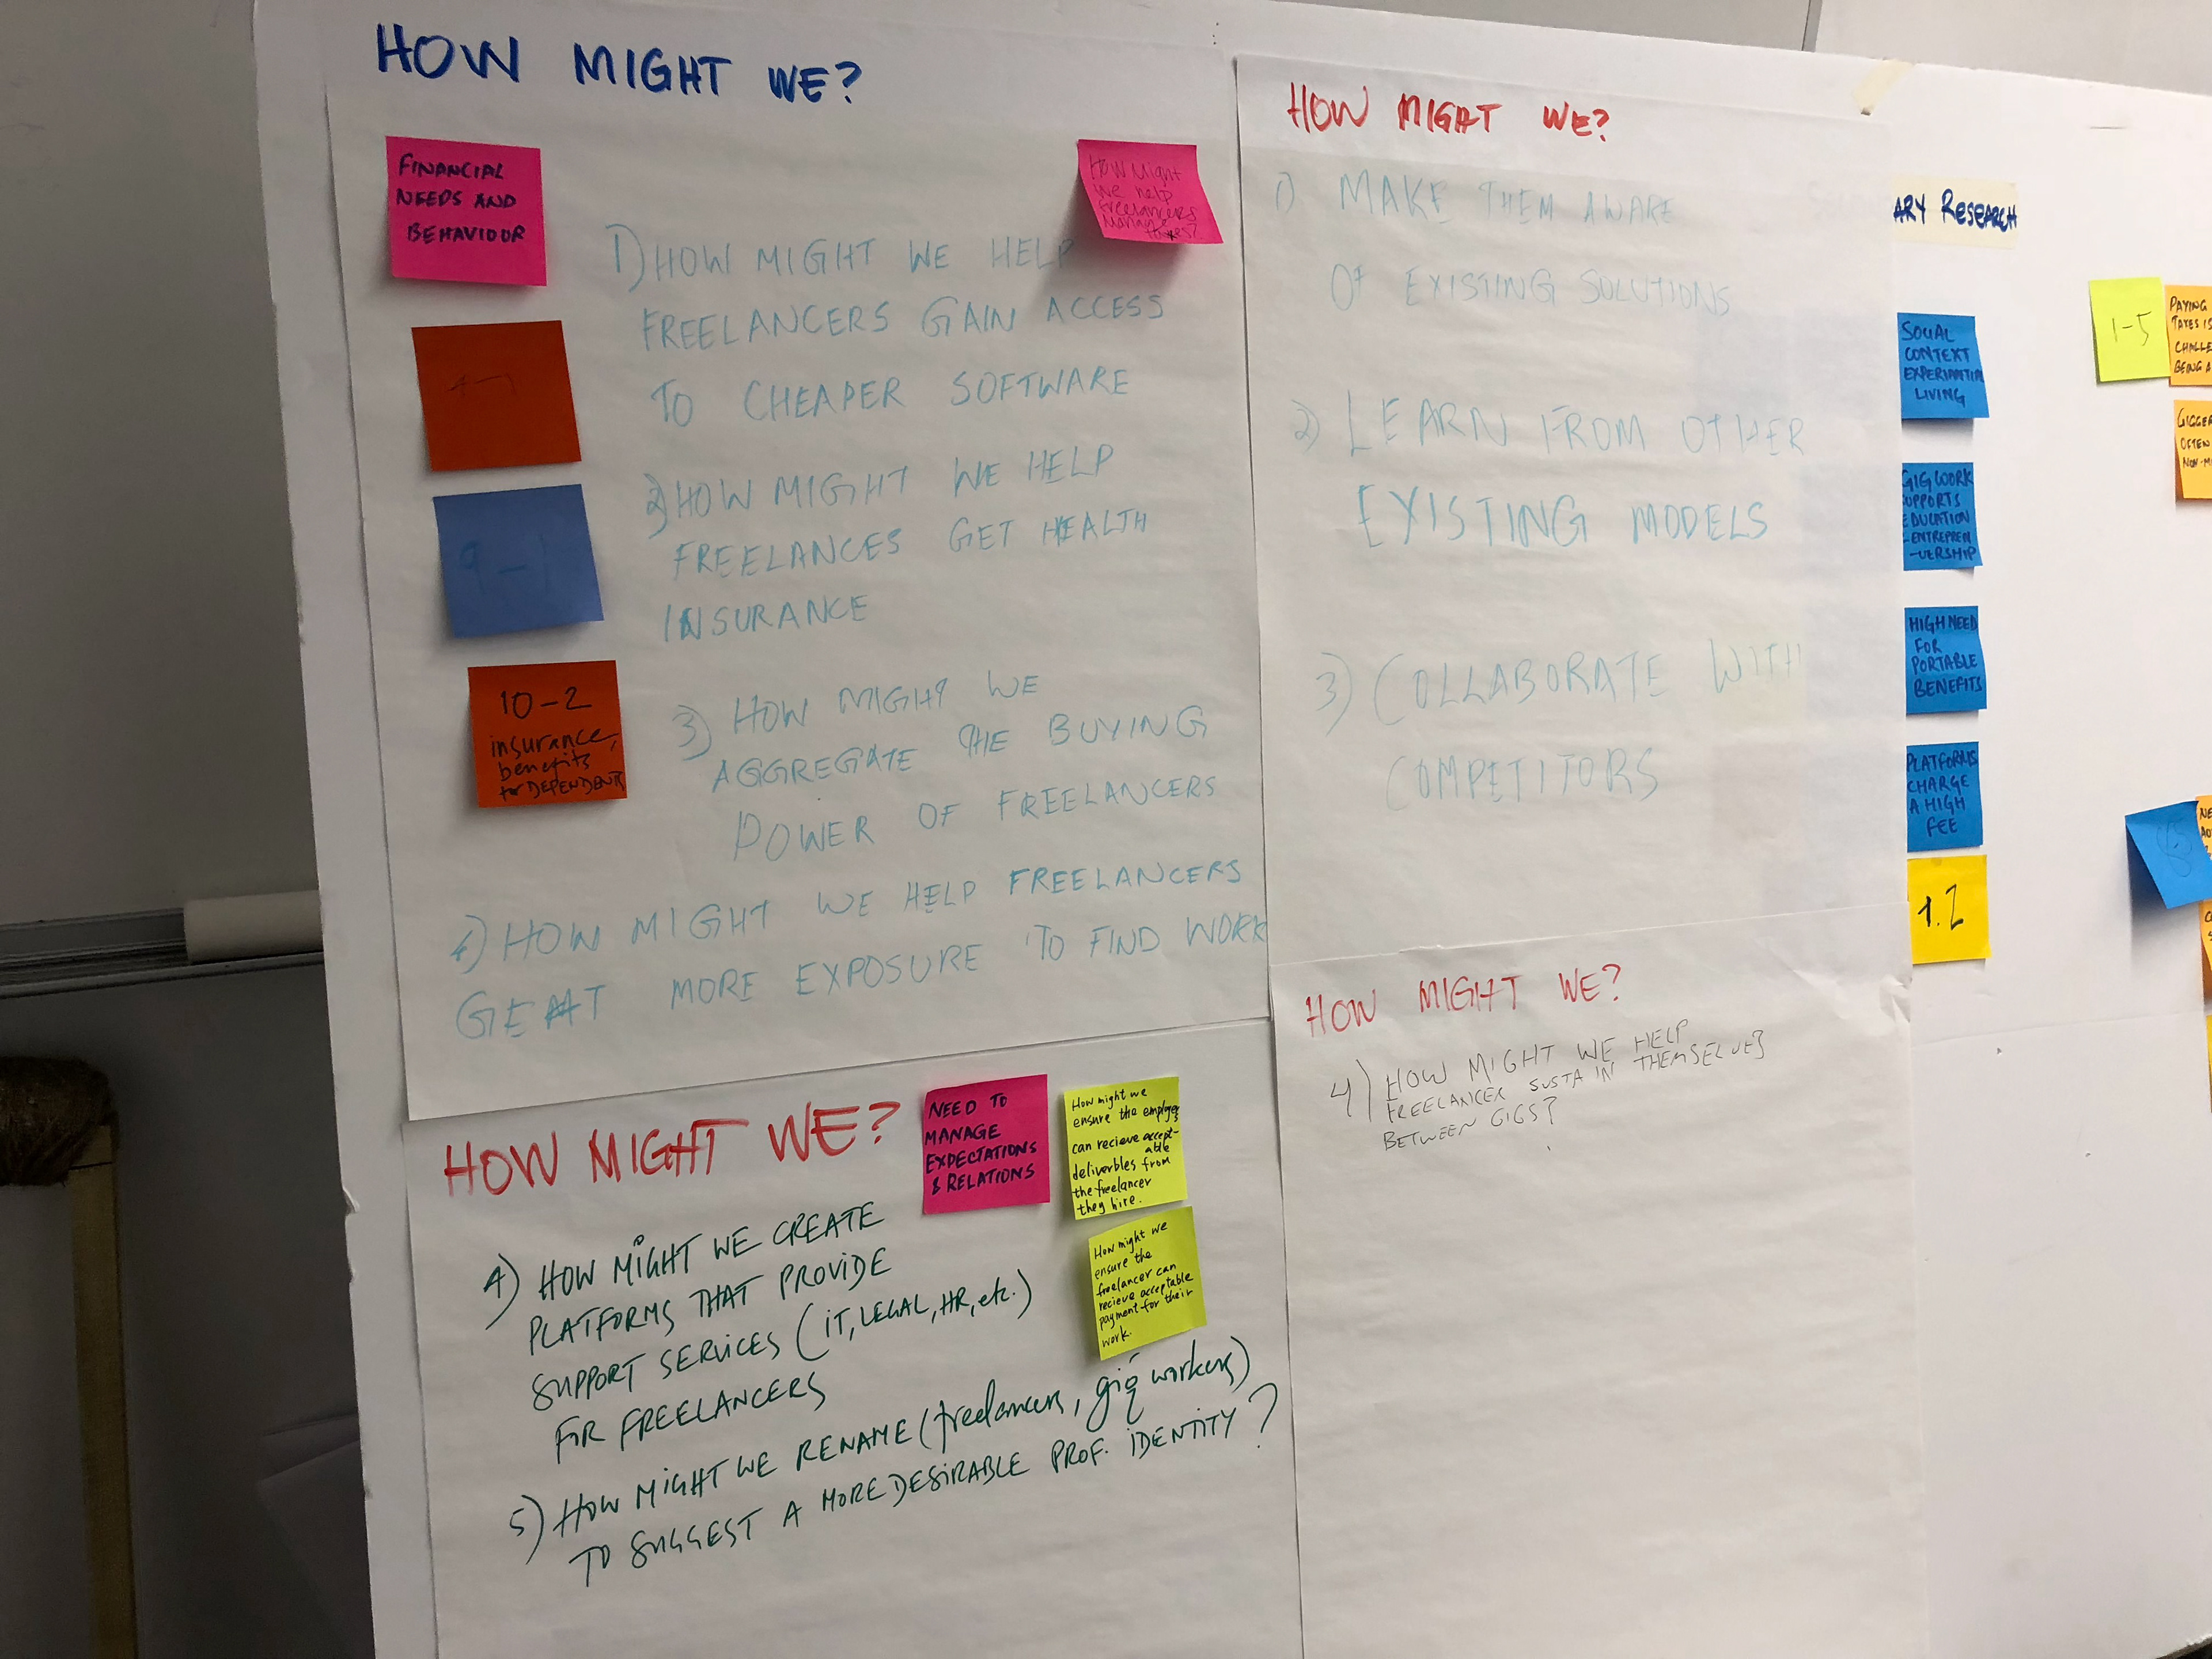 HOW MIGHT WE?
FINANCIAL
NEEDS AND
BEHAVIOUR
How Might
we help
freelancers
Manage
taxes?
1) HOW MIGHT WE HELP
FREELANCERS GAIN ACCESS
TO CHEAPER SOFTWARE
2) HOW MIGHT WE HELP
FREELANCES GET HEALTH
INSURANCE
9-1
10-2
insurance,
benefits
for DEPENDENTS
3) HOW MIGHT WE
AGGREGATE THE BUYING
POWER OF FREELANCERS
4) HOW MIGHT WE HELP FREELANCERS
MORE EXPOSURE TO FIND WORK
HOW MIGHT WE?
1) MAKE THEM AWARE
OF EXISTING SOLUTIONS
2) LEARN FROM OTHER
EXISTING MODELS
3) COLLABORATE WITH
COMPETITORS
HOW MIGHT WE?
NEED TO
MANAGE
EXPECTATIONS
& RELATIONS
How might we
ensure the employer
can recieve accept-
able
deliverbles from
the freelancer
they hire.
How might we
ensure the
freelancer can
recieve acceptable
payment for their
work.
4) HOW MIGHT WE CREATE
PLATFORMS THAT PROVIDE
SUPPORT SERVICES (IT, LEGAL, HR, etc.)
FOR FREELANCERS
5) HOW MIGHT WE RENAME (freelancers, gig workers)
TO SUGGEST A MORE DESIRABLE PROF. IDENTITY?
HOW MIGHT WE?
4) HOW MIGHT WE HELP
FREELANCER SUSTAIN THEMSELVES
BETWEEN GIGS?
ARY RESEARCH
SOCIAL
CONTEXT
LIVING
GIG WORK
UPPORTS
EDUCATION
ENTREPREN
-UERSHIP
HIGH NEED
FOR
PORTABLE
BENEFITS
PLATFORMS
CHARGE
A HIGH
FEE
1.2
1-5
PAYING
TAXES IS
CHALLE
BEING A
GIGGER
OFTEN
NON-M
NE